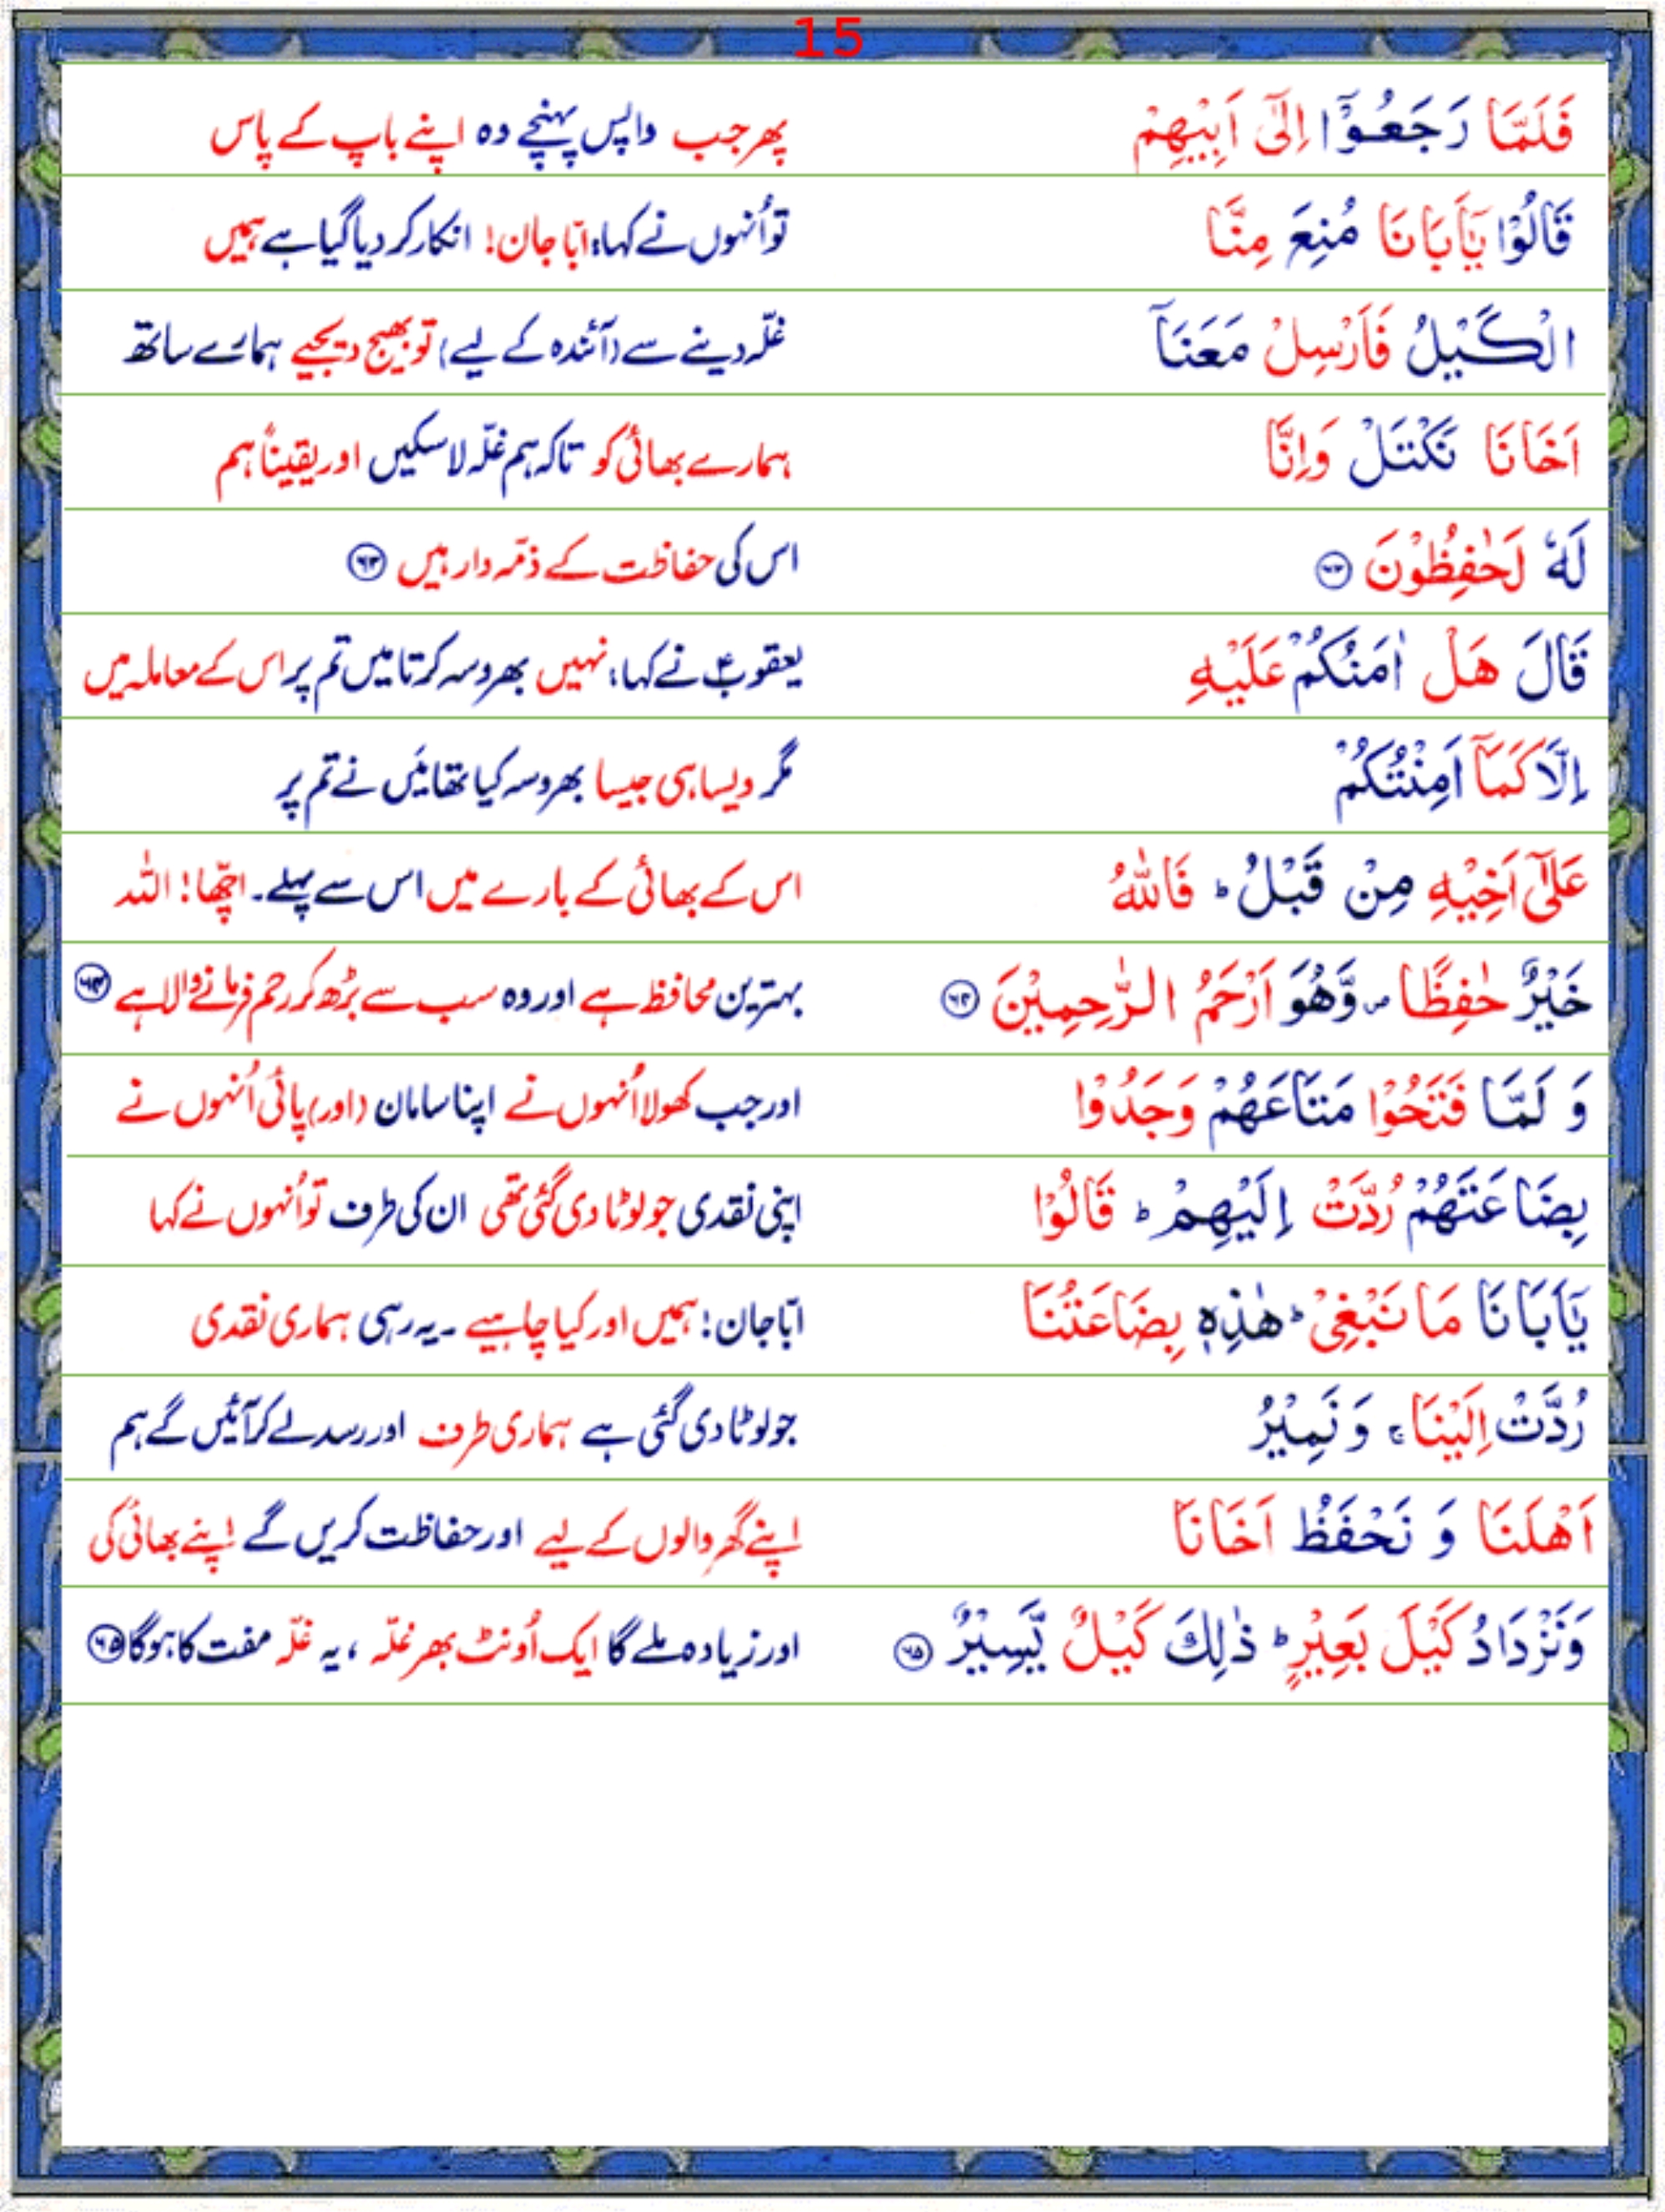 15
فَلَمَّا رَجَعُوْۤا اِلٰۤی اَبِیْهِمْ پھر جب واپس پہنچے وہ اپنے باپ کے پاس
قَالُوْا یٰۤاَبَانَا مُنِعَ مِنَّا تو اُنہوں نے کہا، ابّا جان! انکار کر دیا گیا ہے ہمیں
الْكَیْلُ فَاَرْسِلْ مَعَنَاۤ غلّہ دینے سے (آئندہ کے لیے) تو بھیج دیجیے ہمارے ساتھ
اَخَانَا نَكْتَلْ وَاِنَّا ہمارے بھائی کو تاکہ ہم غلّہ لا سکیں اور یقیناً ہم
لَهٗ لَحٰفِظُوْنَ ۶۳ اس کی حفاظت کے ذمّہ دار ہیں ۶۳
قَالَ هَلْ اٰمَنُكُمْ عَلَیْهِ یعقوبؑ نے کہا: نہیں بھروسہ کرتا میں تم پر اس کے معاملہ میں
اِلَّا كَمَاۤ اَمِنْتُكُمْ مگر ویسا ہی جیسا بھروسہ کیا تھا میَں نے تم پر
عَلٰۤی اَخِیْهِ مِنْ قَبْلُ ؕ فَاللّٰهُ اس کے بھائی کے بارے میں اس سے پہلے۔ اچّھا! اللہ
خَیْرٌ حٰفِظًا ۪ وَّهُوَ اَرْحَمُ الرّٰحِمِیْنَ ۶۴ بہترین محافظ ہے اور وہ سب سے بڑھ کر رحم فرمانے والا ہے ۶۴
وَ لَمَّا فَتَحُوْا مَتَاعَهُمْ وَجَدُوْا اور جب کھولا اُنہوں نے اپنا سامان (اور) پائی اُنہوں نے
بِضَاعَتَهُمْ رُدَّتْ اِلَیْهِمْ ؕ قَالُوْا اپنی نقدی جو لوٹا دی گئی تھی ان کی طرف تو اُنہوں نے کہا
یٰۤاَبَانَا مَا نَبْغِیْ ؕ هٰذِهٖ بِضَاعَتُنَا ابّا جان! ہمیں اور کیا چاہیے۔ یہ رہی ہماری نقدی
رُدَّتْ اِلَیْنَا ۚ وَ نَمِیْرُ جو لوٹا دی گئی ہے ہماری طرف اور رسد لے کر آئیں گے ہم
اَهْلَنَا وَ نَحْفَظُ اَخَانَا اپنے گھر والوں کے لیے اور حفاظت کریں گے اپنے بھائی کی
وَنَزْدَادُ كَیْلَ بَعِیْرٍ ؕ ذٰلِكَ كَیْلٌ یَّسِیْرٌ ۶۵ اور زیادہ ملے گا ایک اُونٹ بھر غلّہ، یہ غلّہ مفت کا ہوگا ۶۵